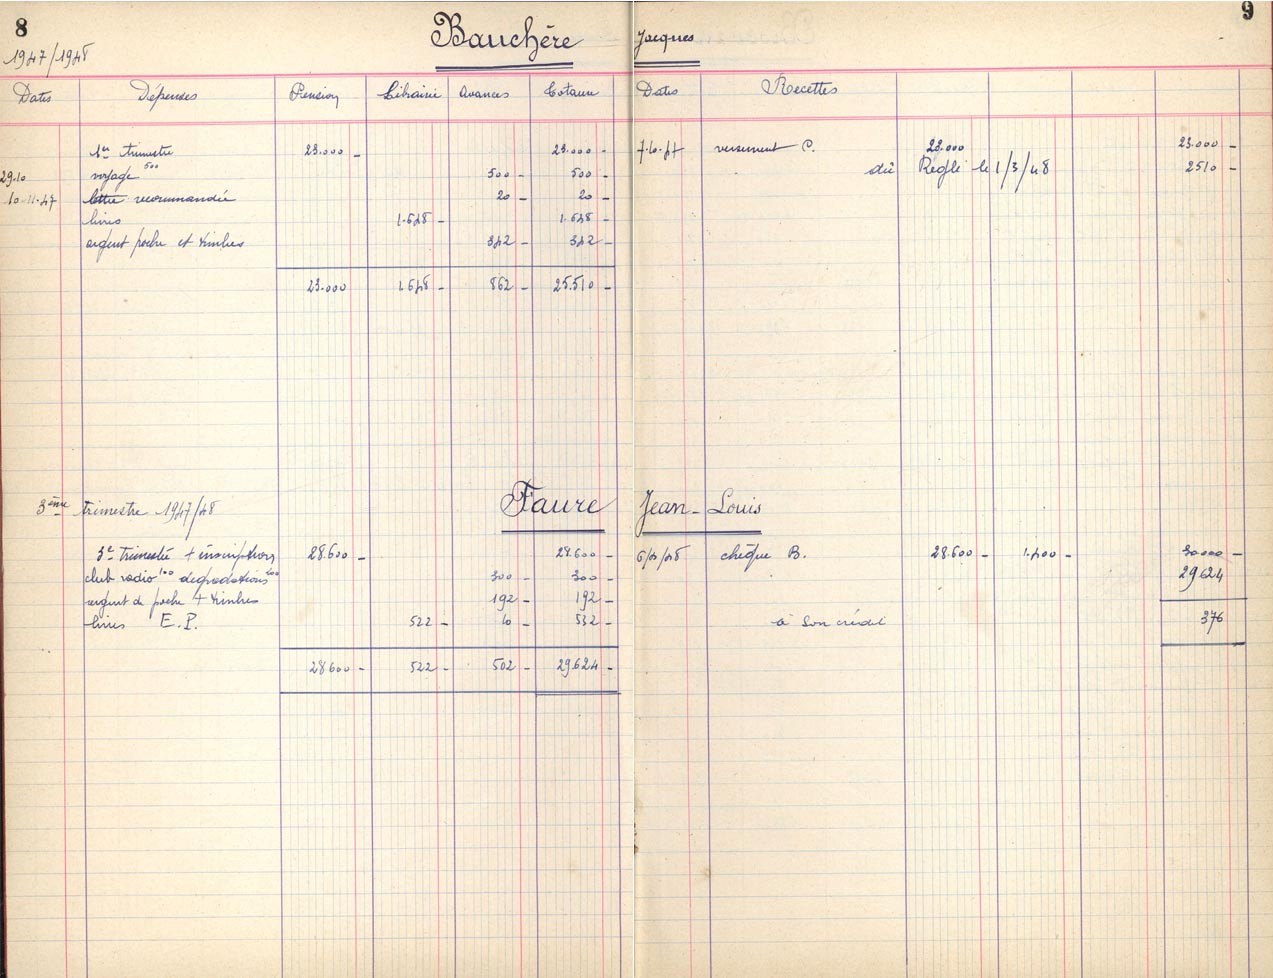 8 9
Bauchère Jacques
1947/1948
Dates Dépenses Pension Librairie Avances Totaux Dates Recettes
1er trimestre 23.000 - 23.000 - 7.10.47 versement C. 23.000 23.000 -
29.10 voyage 500 500 - 500 - dû Réglé le 1/3/48 2510 -
10.11.47 lettre recommandée 20 - 20 -
livres 1.648 - 1.648 -
argent poche et timbres 342 - 342 -
23.000 1648 - 862 - 25.510 -
3ème trimestre 1947/48 Faure Jean-Louis
3e trimestre + inscriptions 28.600 - 28.600 - 6/4/48 chèque B. 28.600 - 1.400 - 30000 -
club radio 100 dégradations 200 300 - 300 - 29624
argent de poche + timbres 192 - 192 -
livres E.P. 522 - 10 - 532 - à son crédit 376
28600 - 522 - 502 - 29624 -